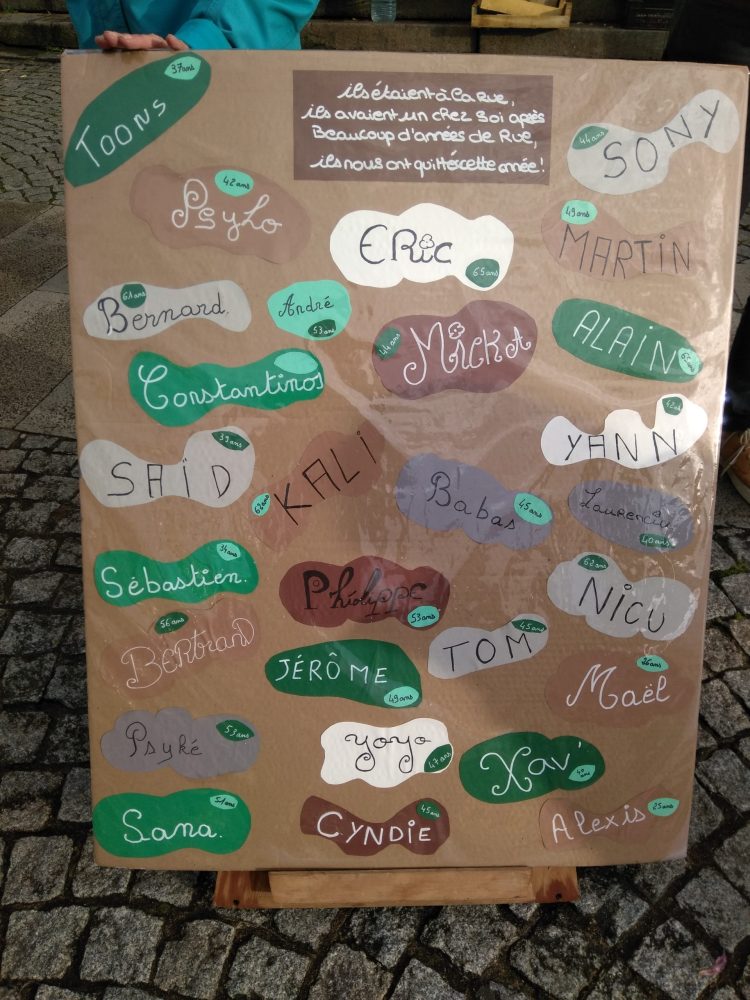 ils étaient à la rue,
ils avaient un chez soi après
Beaucoup d'années de Rue,
ils nous ont quittés cette année !
TOONS 37ans
SONY 44ans
Psyko 42ans
ERic 65ans
MARTIN 49ans
Bernard. 61ans
André 53ans
MickA 44ans
ALAIN
Constantinos
SAÏD 39ans
KALi 62ans
YANN
Babas 45ans
Laurenciu 40ans
Sébastien. 34ans
Philippe 53ans
NiCU 62ans
BERtranD 56ans
JÉRÔME 49ans
TOM 45ans
Maël
Psyké 53ans
yoyo 47ans
Xav' 40 ans
Sana. 51ans
CYNDIE 45ans
Alexis 25ans